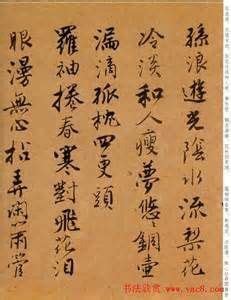 孫浪遊光陰水流梨花
冷淡和人瘦夢悠銅壺
漏滴孤枕四更頭
羅袖捲春寒對飛花泪
眼漫無心拈弄閑簫管
书法欣赏 www.yac8.com